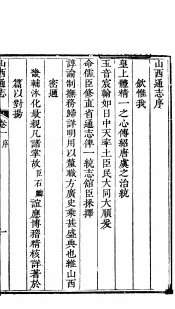 山西通志序
欽惟我
皇上體精一之心傳紹唐虞之治統
玉音宸翰如日中天率土臣民大同大順爰
命儒臣修直省通志俾一統志舘臣採擇
諄諭制撫務歸詳明用以董職方廣史乘甚盛典也維山西
密邇
畿輔沐化最親凡諸掌故臣石麟誼應博稽精核詳著於
篇以對揚
山西通志
卷
序